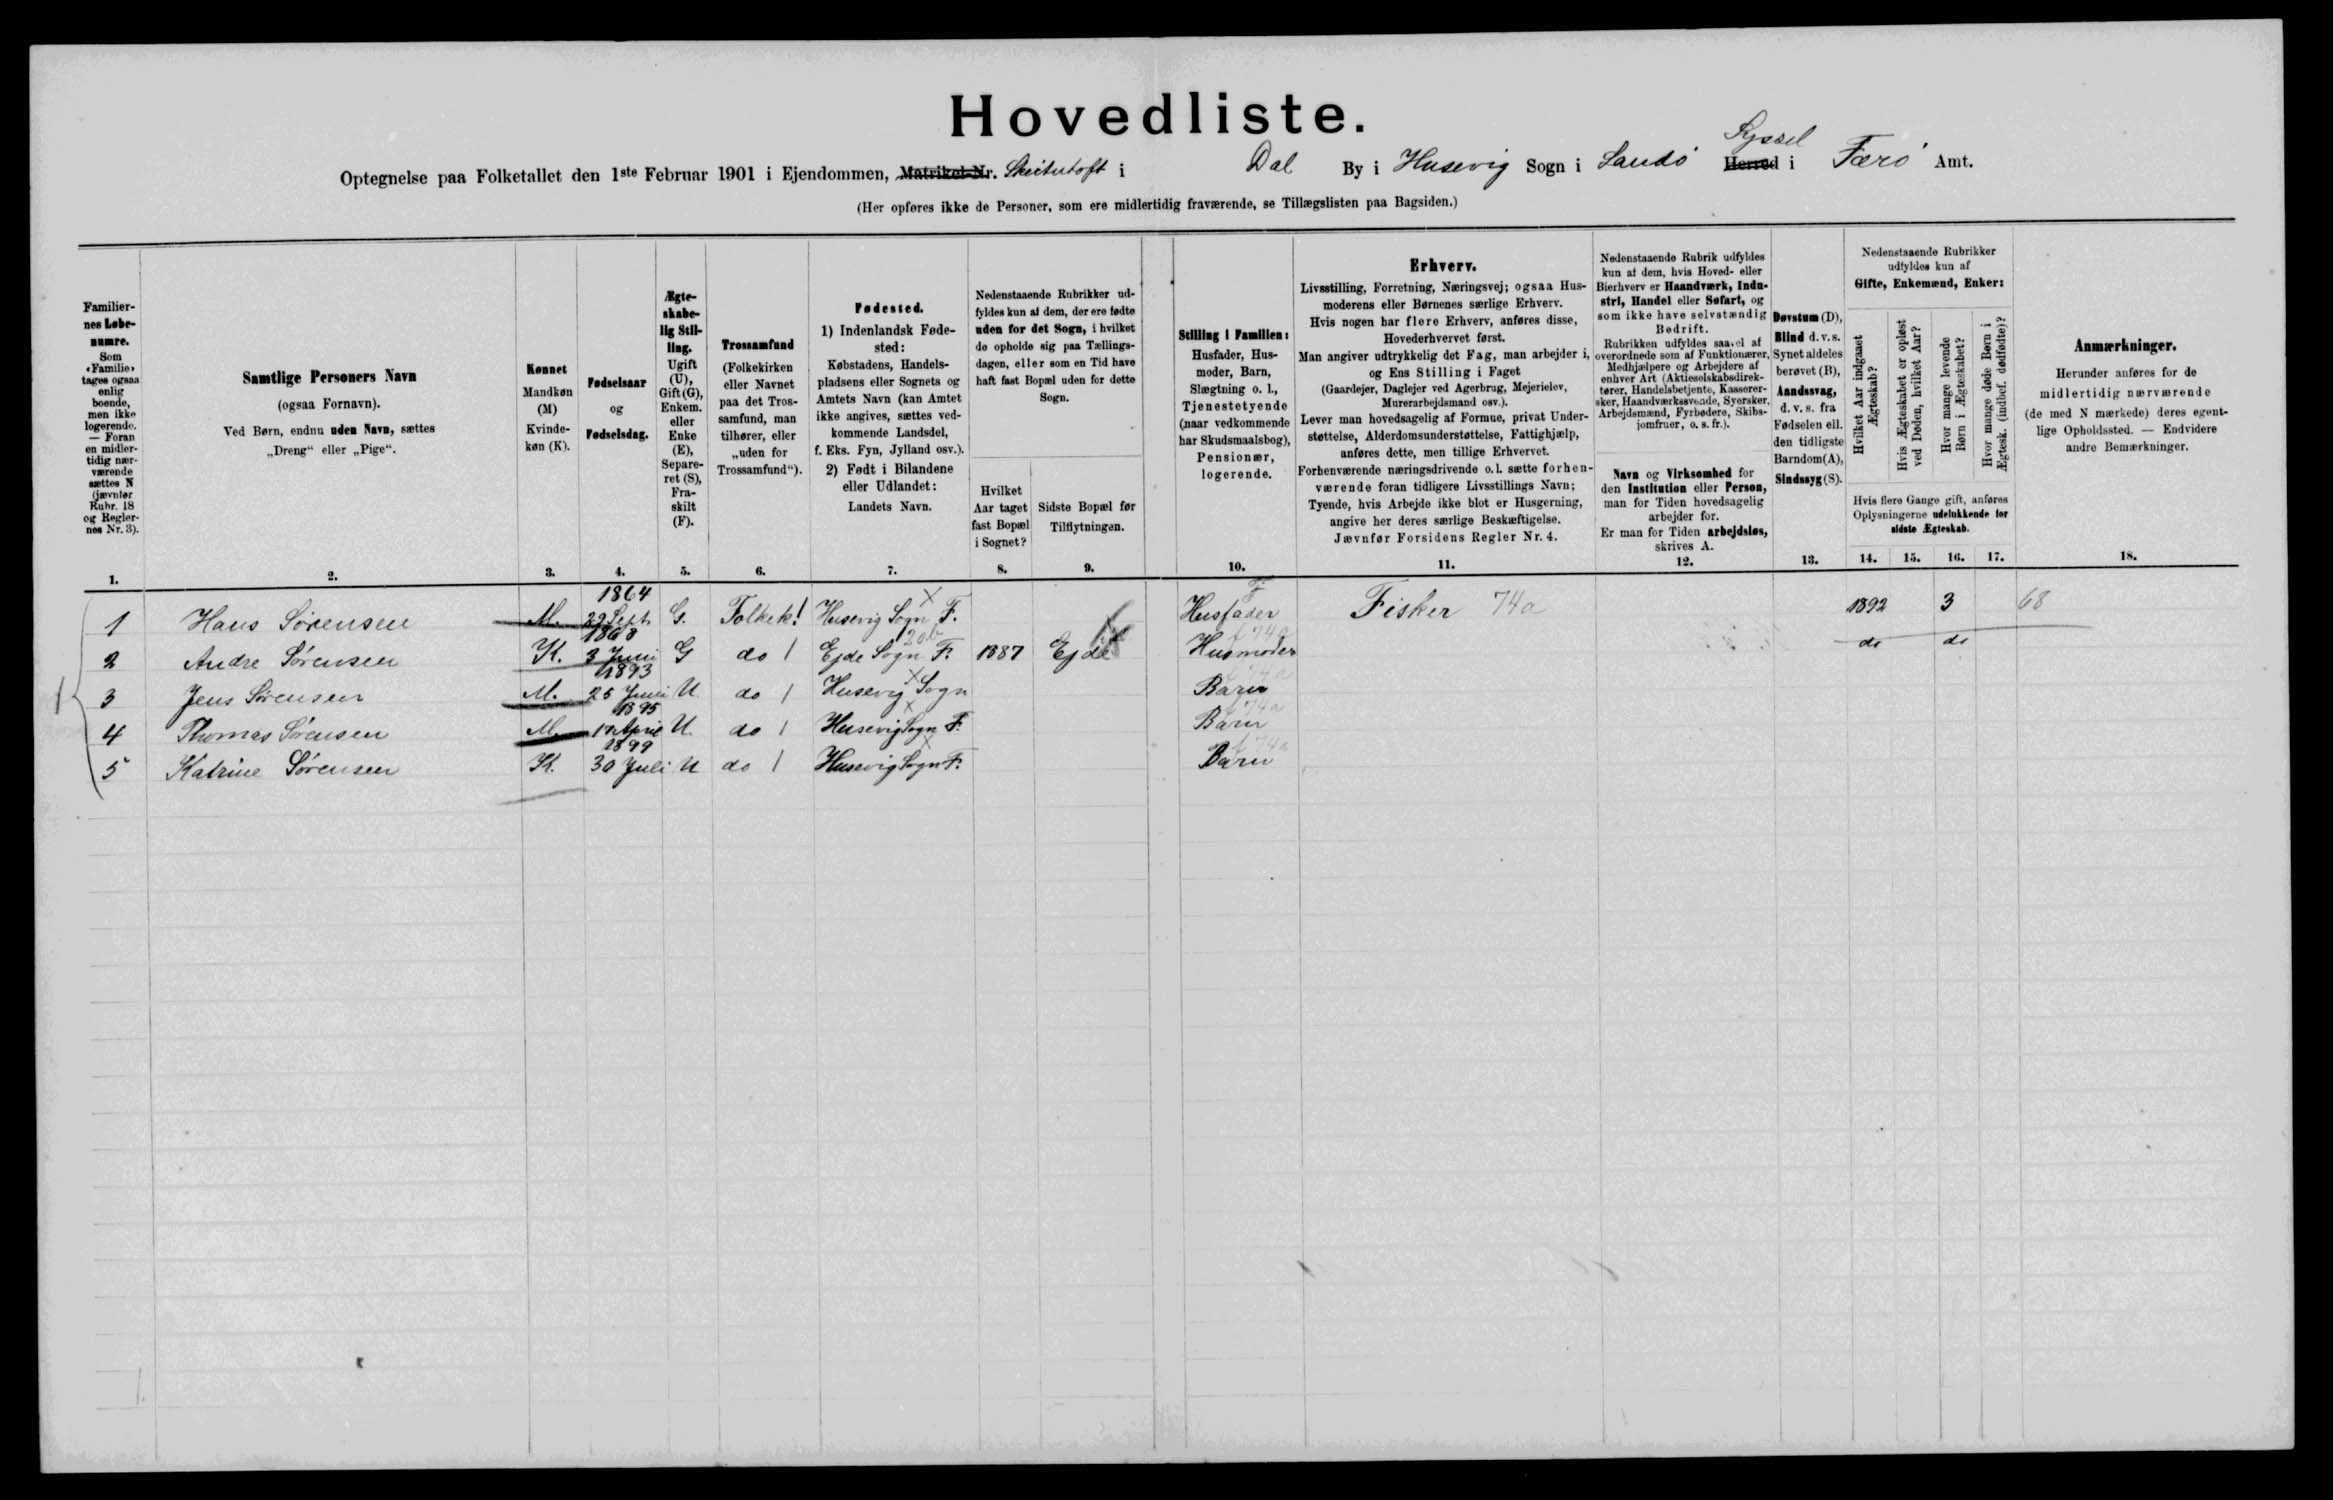 Hovedliste.
Optegnelse paa Folketallet den 1ste Februar 1901 i Ejendommen, Matrikel-Nr. i Dal By i Husevig Sogn i Sandö Herred Syssel i Færö Amt.
(Her opføres ikke de Personer, som ere midlertidig fraværende, se Tillægslisten paa Bagsiden.)
Familier-
nes Løbe-
numre.
Som
«Familie»
tages ogsaa
enlig
boende,
men ikke
logerende.
— Foran
en midler-
tidig nær-
værende
sættes N
(jævnfør
Rubr. 18
og Regler-
nes Nr. 3).
1.
Samtlige Personers Navn
(ogsaa Fornavn).
Ved Børn, endnu uden Navn, sættes
„Dreng“ eller „Pige“.
2.
Kønnet
Mandkøn
(M)
Kvinde-
køn (K).
3.
Fødselsaar
og
Fødselsdag.
4.
Ægte-
skabe-
lig Stil-
ling.
Ugift
(U),
Gift (G),
Enkem.
eller
Enke
(E),
Separe-
ret (S),
Fra-
skilt
(F).
5.
Trossamfund
(Folkekirken
eller Navnet
paa det Tros-
samfund, man
tilhører, eller
„uden for
Trossamfund“).
6.
Fødested.
1) Indenlandsk Føde-
sted:
Købstadens, Handels-
pladsens eller Sognets og
Amtets Navn (kan Amtet
ikke angives, sættes ved-
kommende Landsdel,
f. Eks. Fyn, Jylland osv.).
2) Født i Bilandene
eller Udlandet:
Landets Navn.
7.
Nedenstaaende Rubrikker ud-
fyldes kun af dem, der ere fødte
uden for det Sogn, i hvilket
de opholde sig paa Tællings-
dagen, eller som en Tid have
haft fast Bopæl uden for dette
Sogn.
Hvilket
Aar taget
fast Bopæl
i Sognet?
8.
Sidste Bopæl før
Tilflytningen.
9.
Stilling i Familien:
Husfader, Hus-
moder, Barn,
Slægtning o. l.,
Tjenestetyende
(naar vedkommende
har Skudsmaalsbog),
Pensionær,
logerende.
10.
Erhverv.
Livsstilling, Forretning, Næringsvej; ogsaa Hus-
moderens eller Børnenes særlige Erhverv.
Hvis nogen har flere Erhverv, anføres disse,
Hovederhvervet først.
Man angiver udtrykkelig det Fag, man arbejder i,
og Ens Stilling i Faget
(Gaardejer, Daglejer ved Agerbrug, Mejerielev,
Murerarbejdsmand osv.).
Lever man hovedsagelig af Formue, privat Under-
støttelse, Alderdomsunderstøttelse, Fattighjælp,
anføres dette, men tillige Erhvervet.
Forhenværende næringsdrivende o.l. sætte forhen-
værende foran tidligere Livsstillings Navn;
Tyende, hvis Arbejde ikke blot er Husgerning,
angive her deres særlige Beskæftigelse.
Jævnfør Forsidens Regler Nr. 4.
11.
Nedenstaaende Rubrik udfyldes
kun af dem, hvis Hoved- eller
Bierhverv er Haandværk, Indu-
stri, Handel eller Søfart, og
som ikke have selvstændig
Bedrift.
Rubrikken udfyldes saavel af
overordnede som af Funktionærer,
Medhjælpere og Arbejdere af
enhver Art (Aktieselskabsdirek-
tører, Handelsbetjente, Kasserer-
sker, Haandværkssvende, Syersker,
Arbejdsmænd, Fyrbødere, Skibs-
jomfruer, o. s. fr.).
Navn og Virksomhed for
den Institution eller Person,
man for Tiden hovedsagelig
arbejder for.
Er man for Tiden arbejdsløs,
skrives A.
12.
Døvstum (D),
Blind d. v. s.
Synet aldeles
berøvet (B),
Aandssvag,
d. v. s. fra
Fødselen ell.
den tidligste
Barndom (A),
Sindssyg (S).
13.
Nedenstaaende Rubrikker
udfyldes kun af
Gifte, Enkemænd, Enker:
Hvilket Aar indgaaet
Ægteskab?
Hvis Ægteskabet er opløst
ved Døden, hvilket Aar?
Hvor mange levende
Børn i Ægteskabet?
Hvor mange døde Børn i
Ægtesk. (indbef. dødfødte)?
Hvis flere Gange gift, anføres
Oplysningerne udelukkende for
sidste Ægteskab.
14. 15. 16. 17.
Anmærkninger.
Herunder anføres for de
midlertidig nærværende
(de med N mærkede) deres egent-
lige Opholdssted. — Endvidere
andre Bemærkninger.
18.
1 Hans Sörensen M. 1864 29 Sept. G. Folkek! Husevig Sogn F. Husfader Fisker 74a 1892 3 68
2 Andre Sörensen K. 1868 3 Juni G do Ejde Sogn F. 1887 Ejde Husmoder do do
3 Jens Sörensen M. 1893 25 Juni U do Husevig Sogn Barn
4 Thomas Sörensen M. 1895 17 April U. do Husevig Sogn F. Barn
5 Katrine Sörensen K. 1899 30 Juli U do Husevig Sogn F. Barn